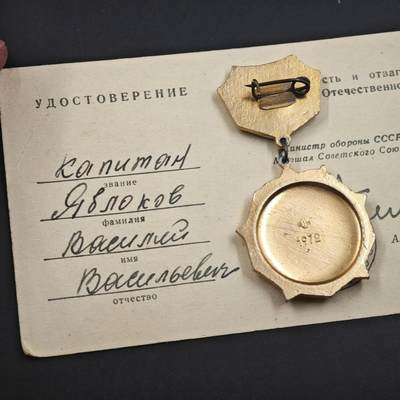 УДОСТОВЕРЕНИЕ
капитан
звание
Яблоков
фамилия
Василий
имя
Васильевич
отчество
сть и отваг
Отечественно
Министр обороны СССР
Маршал Советского Союз
А